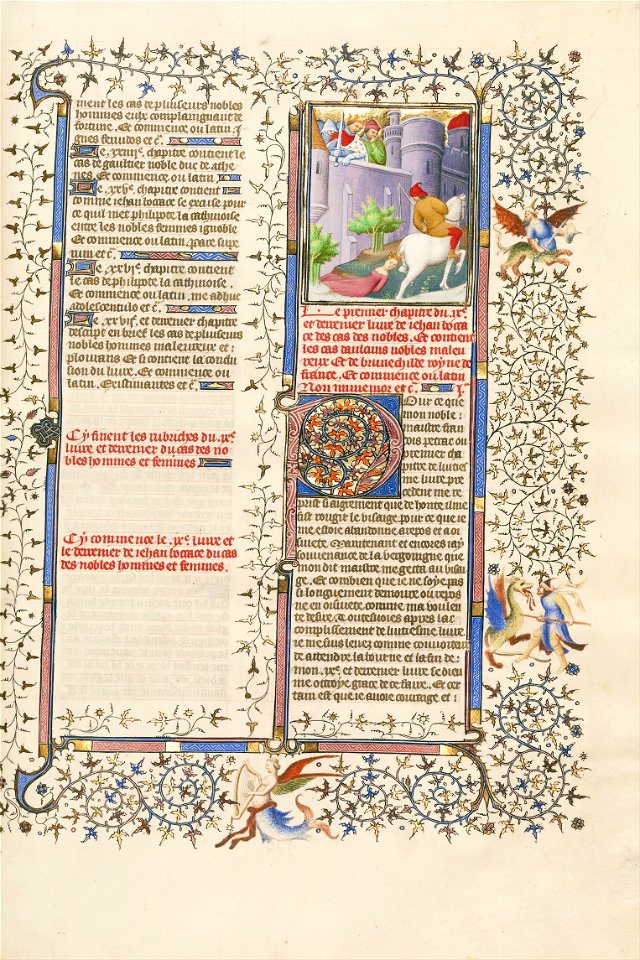 ment les cas de pluiseurs nobles
hommes eulx complaignant de
fortune. Et commence ou latin.
gnes seruidos et c̃.
Le .xxiiijᵉ. chapitre contient le
cas de gaultier noble duc de athe
nes. Et commence ou latin.
Le .xxvᵉ. chapitre contient
comme iehan bocace se excuse pour
ce quil met philipote la cathinoise
entre les nobles femmes ignoble
Et commence ou latin. pace
et c̃.
Le .xxvjᵉ. chapitre contient
le cas de philipote la cathinoise.
Et commence ou latin. me adhuc
adolescentulo et c̃.
Le .xxvijᵉ. et derrenier chapitre
descript en brief les cas de pluseurs
nobles hommes maleureux et
plourans Et si contient la conclu
sion du liure. Et commence ou
latin. Existimantes et c̃.
Cy finent les rubriches du .ixᵉ.
liure et derrenier du cas des no
bles hommes et femmes.
Cy commence le .ixᵉ. liure et
le derrenier de iehan bocace du cas
des nobles hommes et femmes.
Le premier chapitre du .ixᵉ.
et derrenier liure de iehan boca
ce des cas des nobles. Et contient
les cas daulcuns nobles maleu
reux Et de brunechilde royne de
france. Et commence ou latin
Non et c̃.
Pour ce que
mon noble
maistre fran
cois petrac ou
premier cha
pitre de luities
me liure pre
cedent me re
prist si aigrement que de honte il me
fist rougir le visaige pour ce que ie
mestoie abandonne a repos et a oi
siuete Maintenant et encores iay
souuenance de la vergoingne que
mon dit maistre me getta au visai
ge. Et combien que ie ne soye pas
si longuement demoure ou repos
ne en oisiuete comme ma voulen
te desire. Toutesuoies apres la
complissement de luitiesme liure
ie me suis leuez comme conuoiteux
de attendre la bourne et la fin de
mon .ixᵉ. et derrenier liure se dieu
me ottroye grace de ce faire. Et cer
tain est que ie auoie couraige et